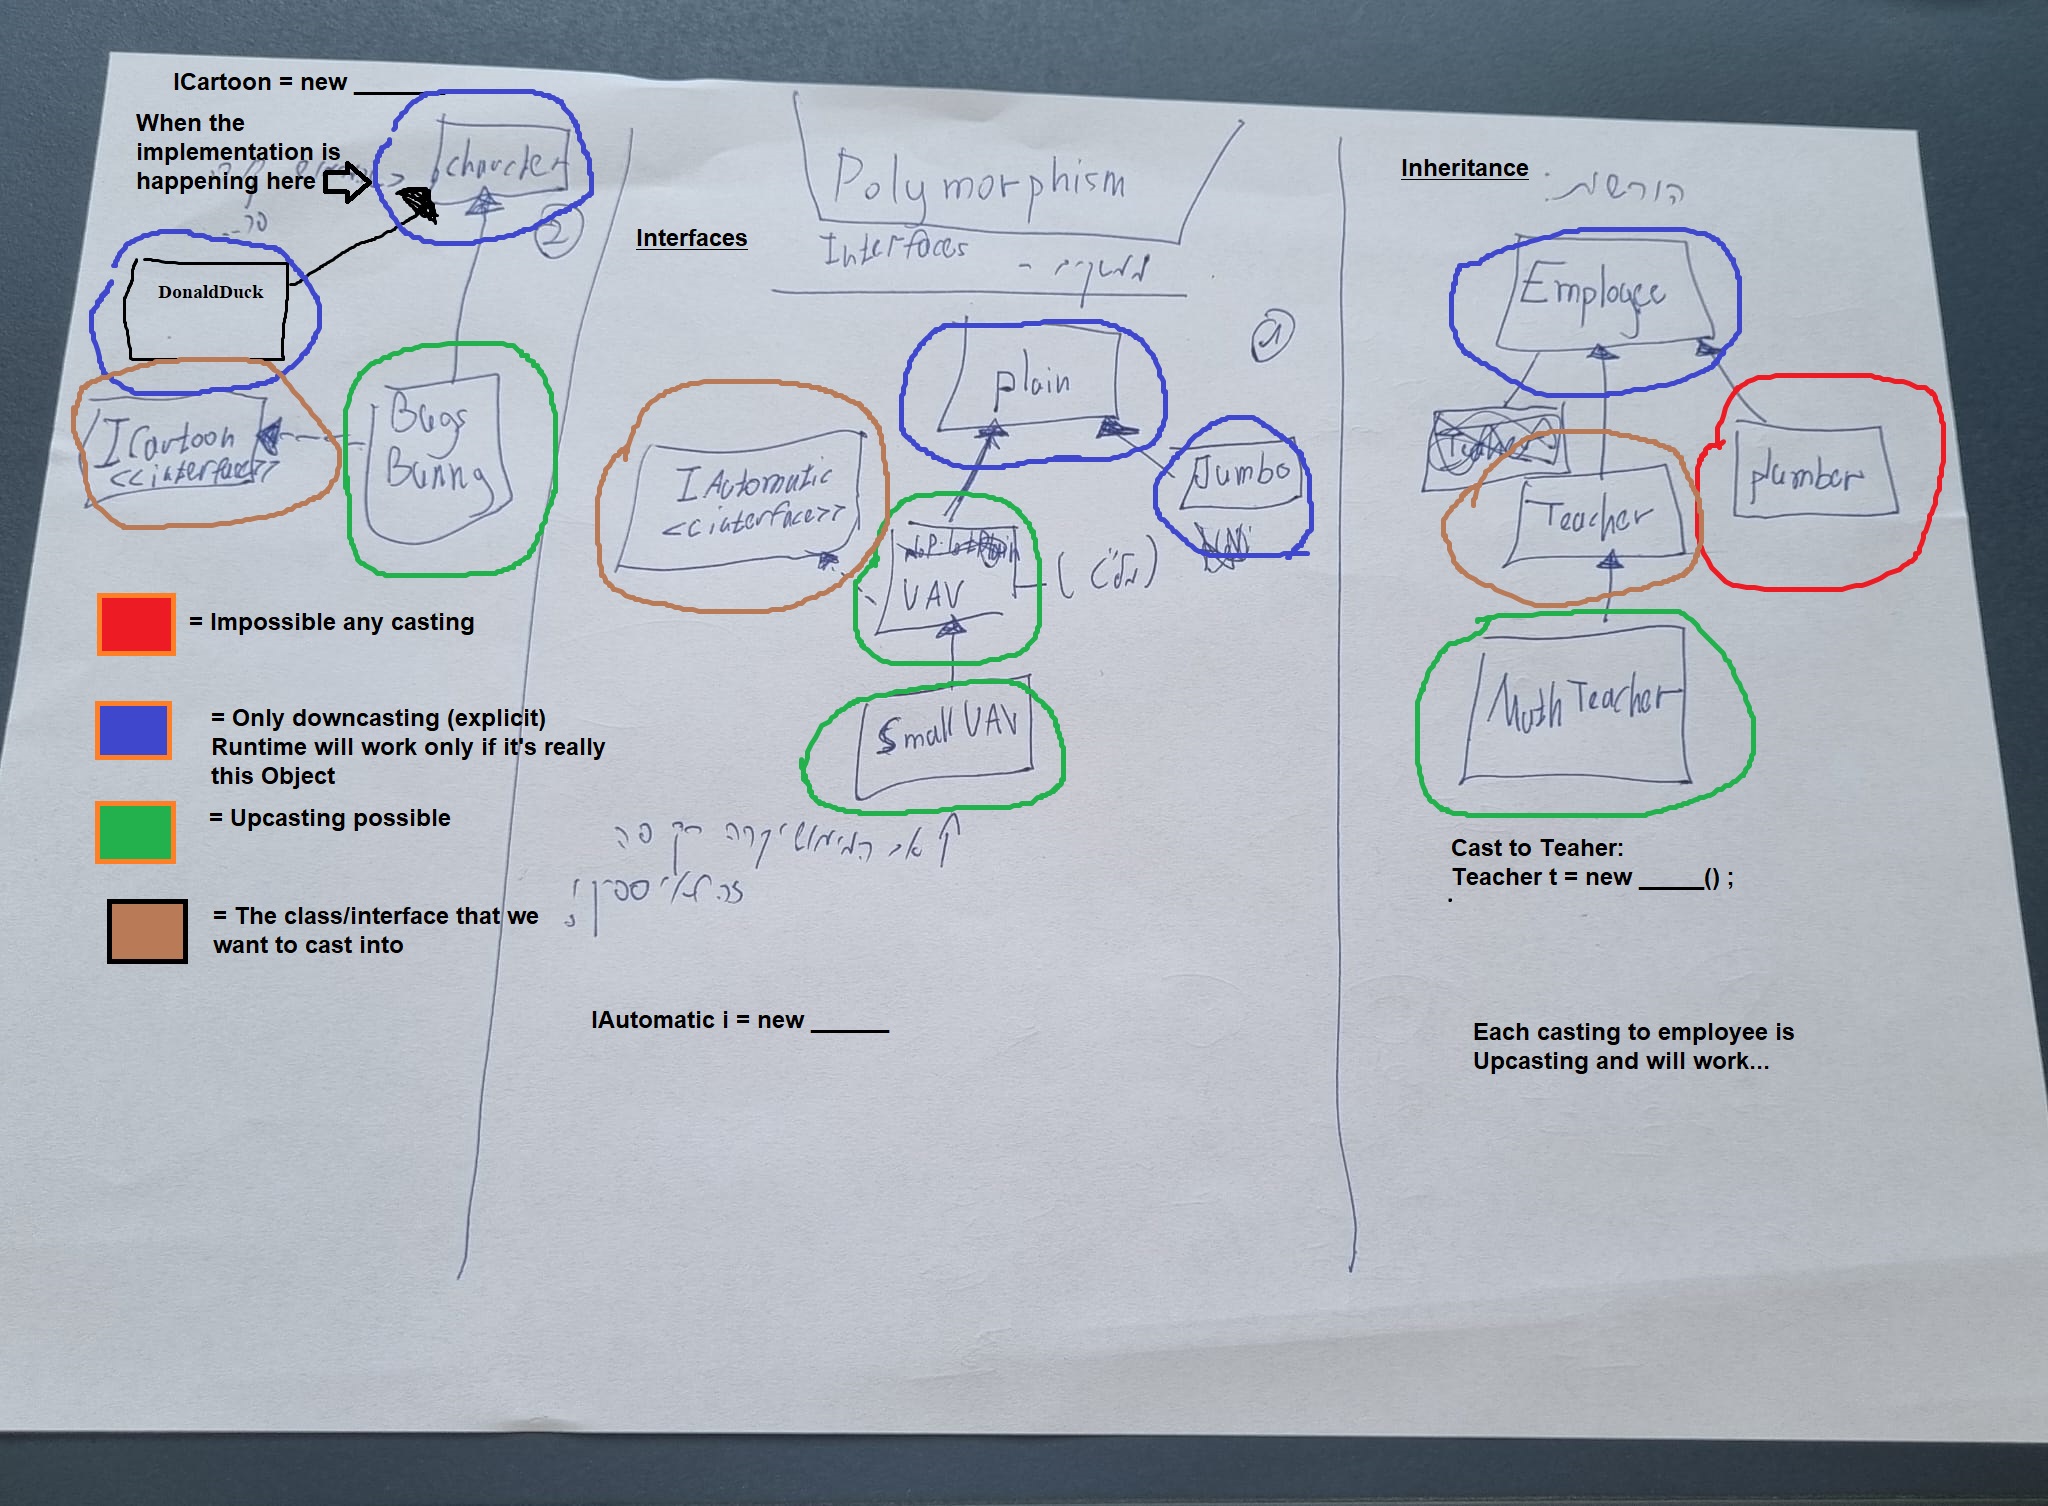 ICartoon = new ______
When the
implementation is
happening here
character
2
DonaldDuck
ICartoon
<<interface>>
Bugs
Bunny
= Impossible any casting
= Only downcasting (explicit)
Runtime will work only if it's really
this Object
= Upcasting possible
= The class/interface that we
want to cast into
Polymorphism
Interfaces
Interfaces -
1
plain
IAutomatic
<<interface>>
Jumbo
VAV
Small VAV
IAutomatic i = new ______
Inheritance
הורשה:
Employee
Teacher
plumber
Math Teacher
Cast to Teaher:
Teacher t = new _____() ;
.
Each casting to employee is
Upcasting and will work...